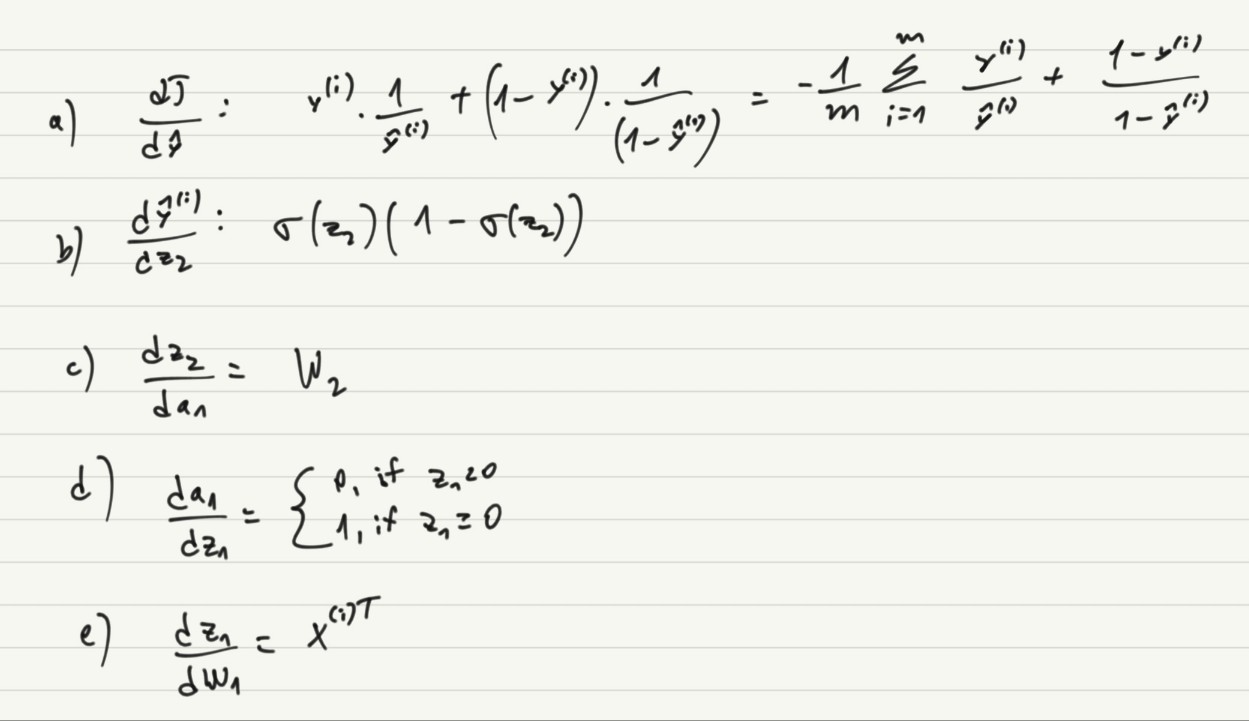 a) dJ/dŷ : y^(i) · 1/ŷ^(i) + (1 - y^(i)) · 1/(1 - ŷ^(i)) = - 1/m Σ_{i=1}^{m} y^(i)/ŷ^(i) + (1 - y^(i))/(1 - ŷ^(i))
b) dŷ^(i)/dz₂ : σ(z₂)(1 - σ(z₂))
c) dz₂/da₁ = W₂
d) da₁/dz₁ = { 0, if z₁ < 0
1, if z₁ ≥ 0
e) dz₁/dW₁ = x^(i)T